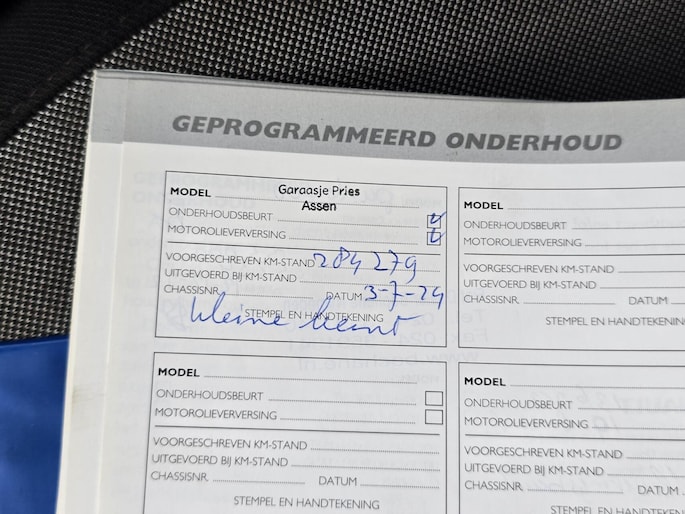 GEPROGRAMMEERD ONDERHOUD
MODEL Garaasje Pries
Assen
ONDERHOUDSBEURT
MOTOROLIEVERVERSING
VOORGESCHREVEN KM-STAND 284 279
UITGEVOERD BIJ KM-STAND
CHASSISNR. DATUM 3-7-24
STEMPEL EN HANDTEKENING
kleine beurt
MODEL
ONDERHOUDSBEURT
MOTOROLIEVERVERSING
VOORGESCHREVEN KM-STAND
UITGEVOERD BIJ KM-STAND
CHASSISNR. DATUM
STEMPEL EN HANDTEKENING
MODEL
ONDERHOUDSBEURT
MOTOROLIEVERVERSING
VOORGESCHREVEN KM-STAND
UITGEVOERD BIJ KM-STAND
CHASSISNR. DATUM
STEMPEL EN HANDTEKENING
MODEL
ONDERHOUDSBEURT
MOTOROLIEVERVERSING
VOORGESCHREVEN KM-STAND
UITGEVOERD BIJ KM-STAND
CHASSISNR. DATUM
STEMPEL EN HANDTEKENIN